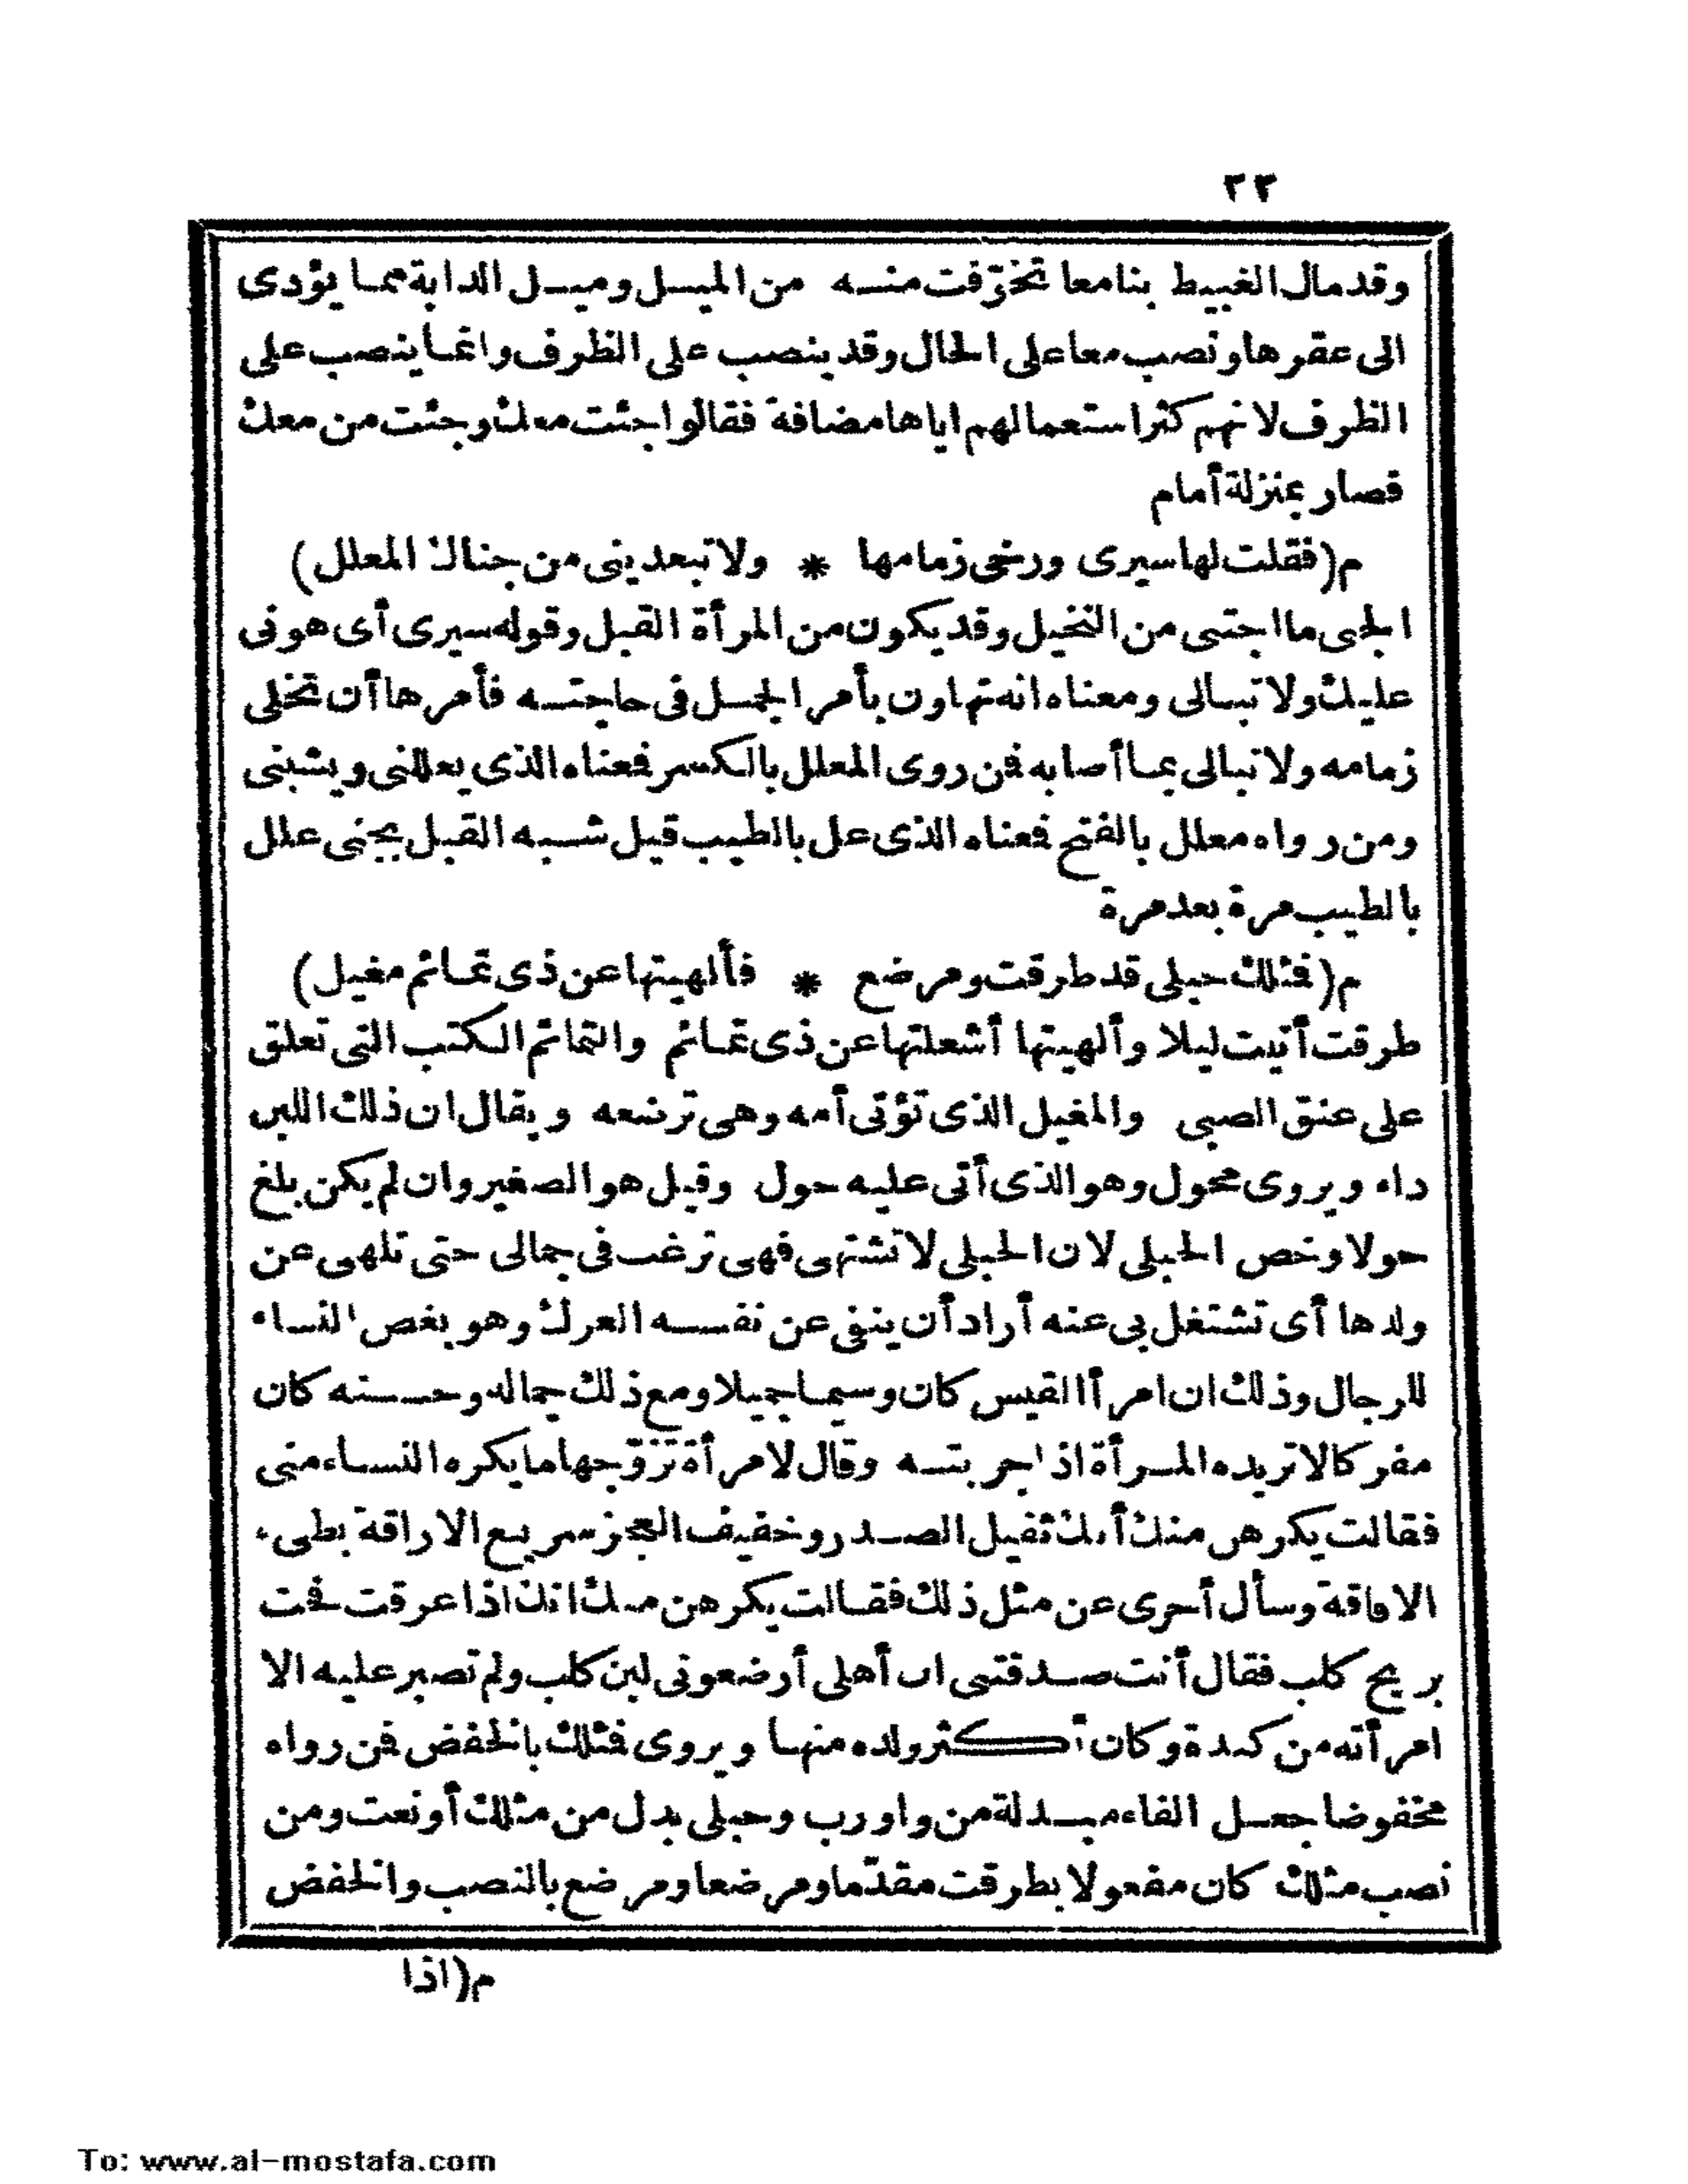 ٢٣
وقد مال الغبيط بنا معا تخوّفت منه من الميل وميل الدابة مما يؤدى
الى عقرها ونصب معا على الحال وقد ينصب على الظرف وانما ينصب على
الظرف لانهم كثر استعمالهم اياها مضافة فقالوا جئت معك وجئت من معك
فصار بمنزلة أمام
م(فقلت لها سيرى ورخى زمامها * ولا تبعدينى من جناك المعلل)
الجنى ما اجتنى من النخيل وقد يكون من المرأة القبل وقوله سيرى أى هونى
عليك ولا تبالى ومعناه انه تهاون بأمر الجمل فى حاجته فأمرها أن تخلى
زمامه ولا تبالى بما أصابه فمن روى المعلل بالكسر فمعناه الذى يعللنى ويشبنى
ومن رواه معلل بالفتح فمعناه الذى عل بالطيب قيل شبه القبل بجنى علل
بالطيب مرة بعد مرة
م(فمثلك حبلى قد طرقت ومرضع * فألهيتها عن ذى تمائم مغيل)
طرقت أتيت ليلا وألهيتها أشغلتها عن ذى تمائم والتمائم الكتب التى تعلق
على عنق الصبى والمغيل الذى تؤتى أمه وهى ترضعه ويقال ان ذلك اللبن
داء ويروى محول وهو الذى أتى عليه حول وقيل هو الصغير وان لم يكن بلغ
حولا وخص الحبلى لان الحبلى لا تشتهى فهى ترغب فى جمالى حتى تلهى عن
ولدها أى تشتغل بى عنه أراد أن ينفى عن نفسه العرك وهو بغض النساء
للرجال وذلك ان امرأ القيس كان وسيما جميلا ومع ذلك جماله وحسنه كان
مفركا لا تريده المرأة اذا جربته وقال لامرأة تزوّجها ما يكره النساء منى
فقالت يكرهن منك أنك ثقيل الصدر وخفيف العجز سريع الاراقة بطىء
الافاقة وسأل أخرى عن مثل ذلك فقالت يكرهن منك انك اذا عرقت فحت
بريح كلب فقال أنت صدقتنى ان أهلى أرضعونى لبن كلب ولم تصبر عليه الا
امرأته من كندة وكان أكثر ولده منها ويروى فمثلك بالخفض فمن رواه
مخفوضا جعل الفاء مبدلة من واو رب وحبلى بدل من مثلك أو نعت ومن
نصب مثلك كان مفعولا بطرقت مقدّما ومرضعا ومرضع بالنصب والخفض
م(اذا
To: www.al-mostafa.com